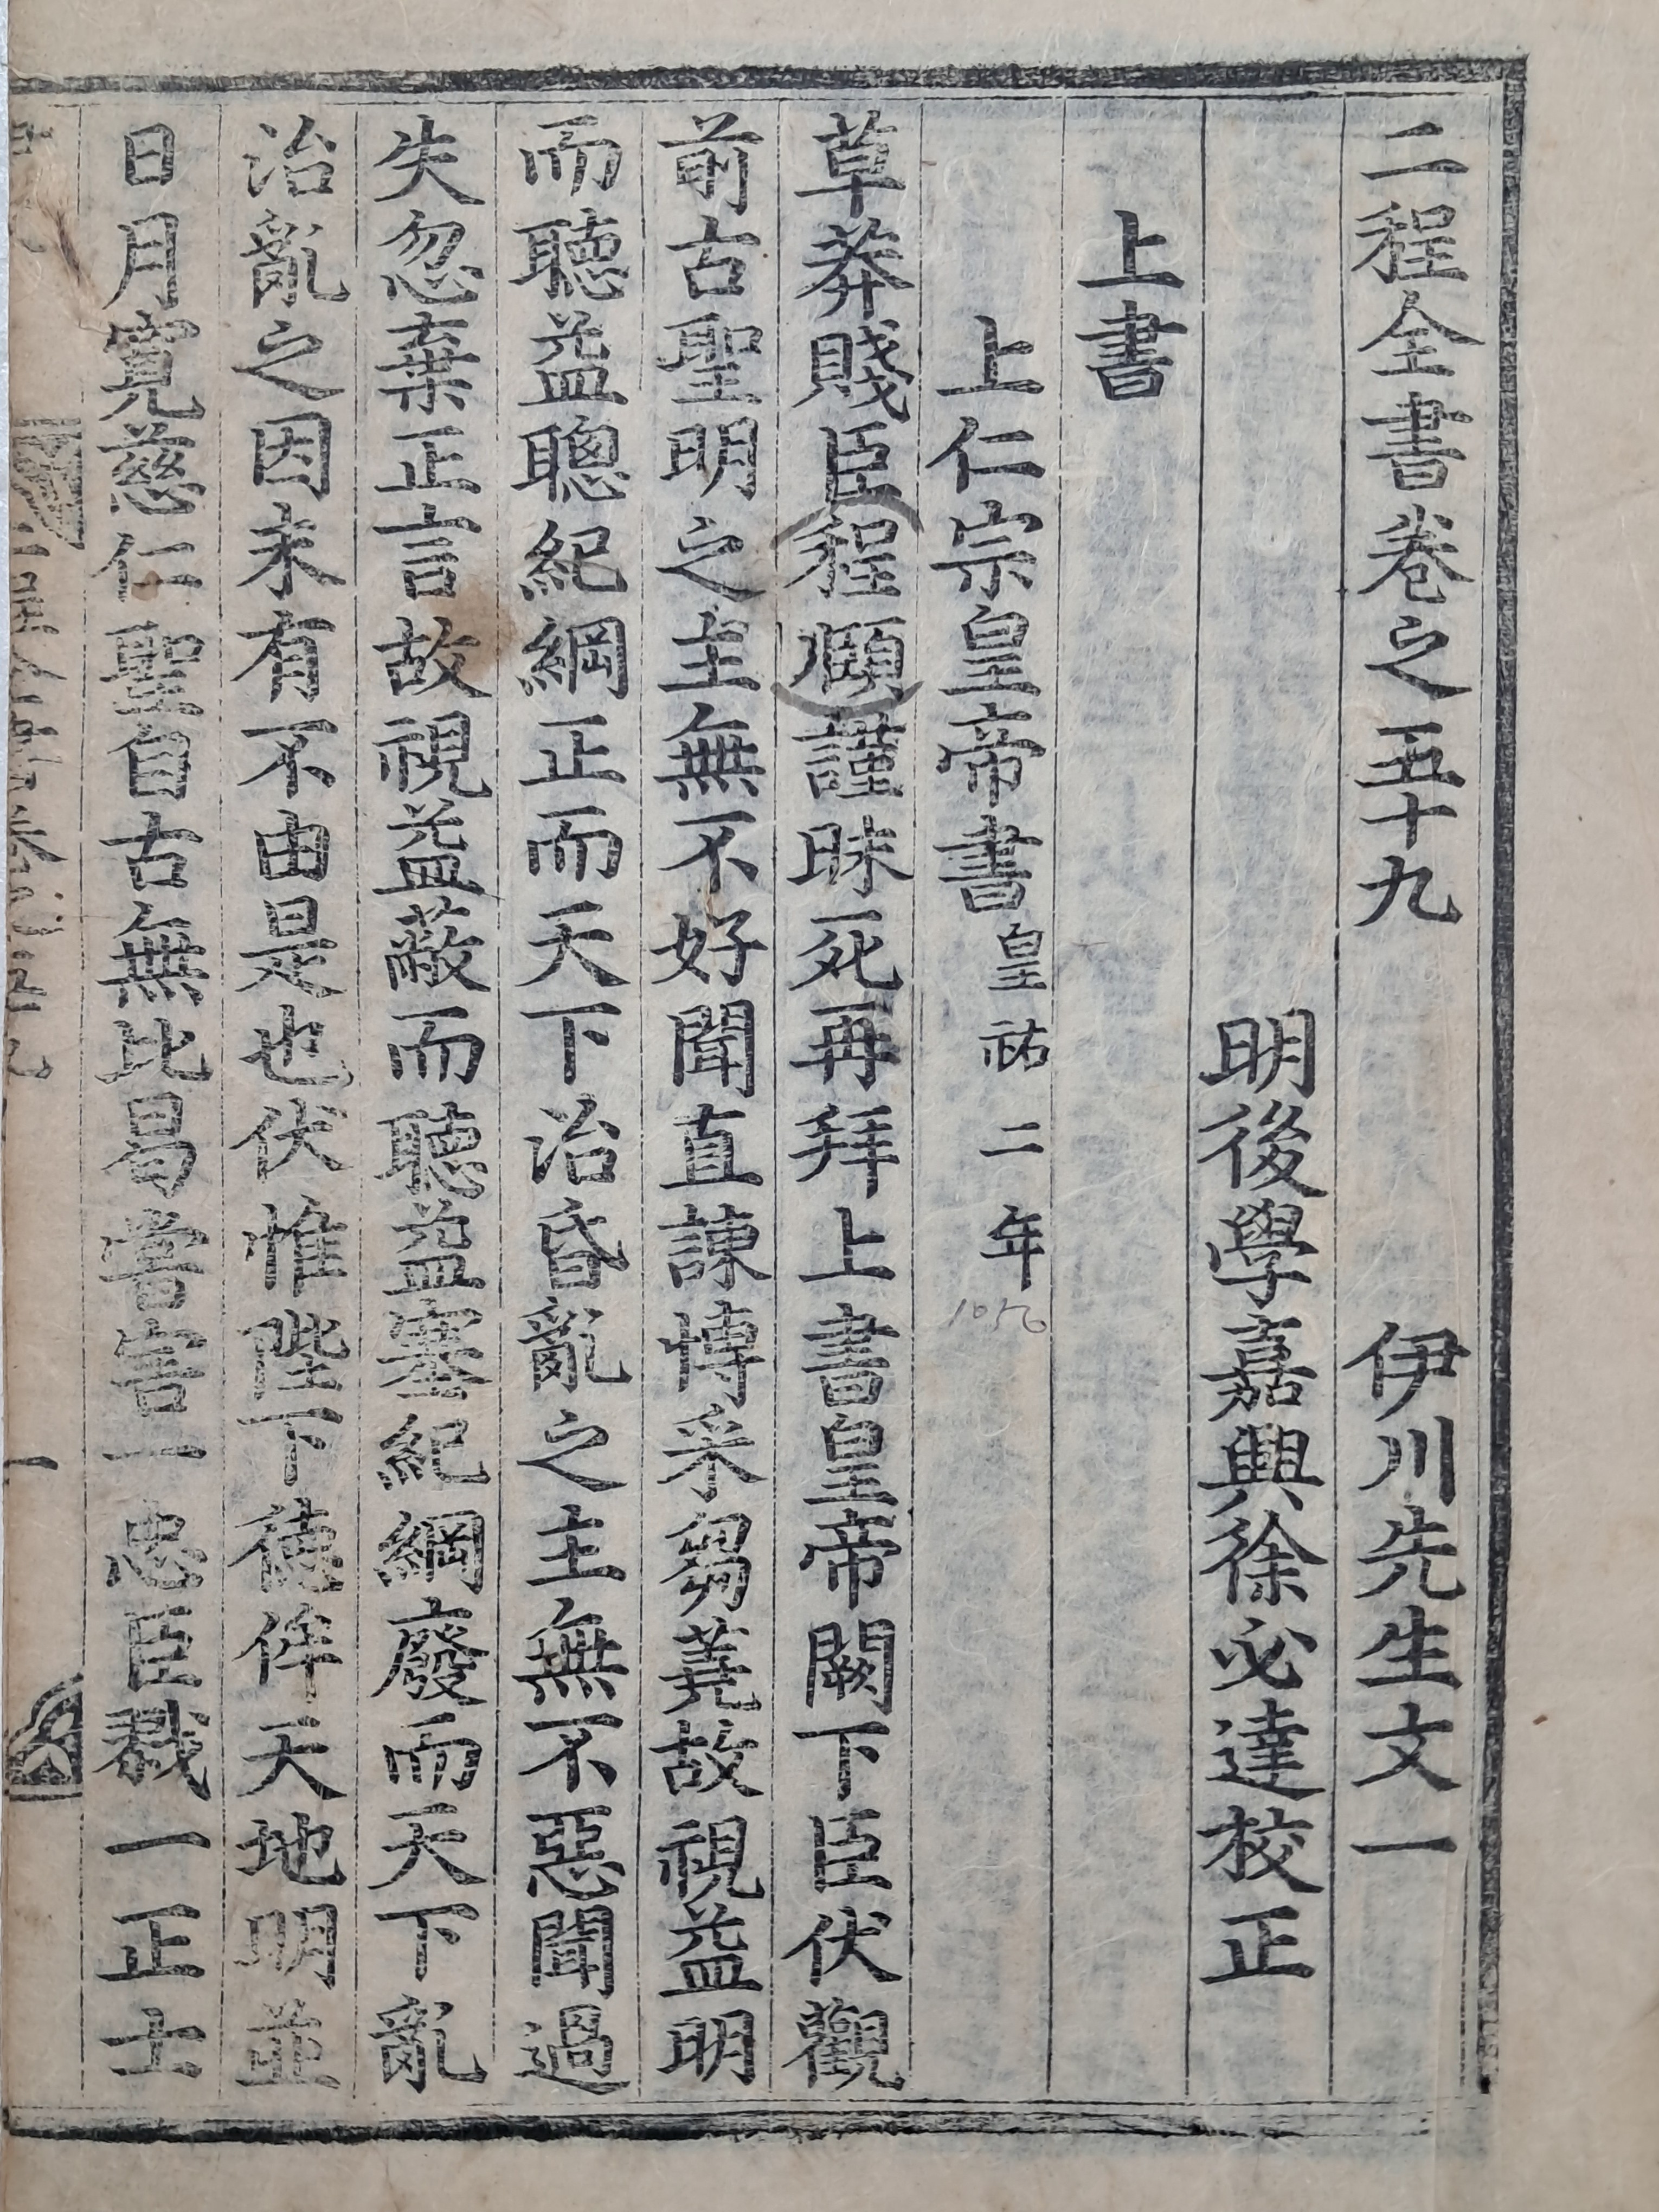 二程全書卷之五十九 伊川先生文一
明後學嘉興徐必達校正
上書
上仁宗皇帝書 皇祐二年 1050
草莽賤臣程頤謹昧死再拜上書皇帝闕下臣伏觀
前古聖明之主無不好聞直諫博采芻蕘故視益明
而聽益聰紀綱正而天下治昏亂之主無不惡聞過
失忽棄正言故視益蔽而聽益塞紀綱廢而天下亂
治亂之因未有不由是也伏惟陛下德侔天地明並
日月寬慈仁聖自古無比曷嘗害一忠臣戮一正士
一